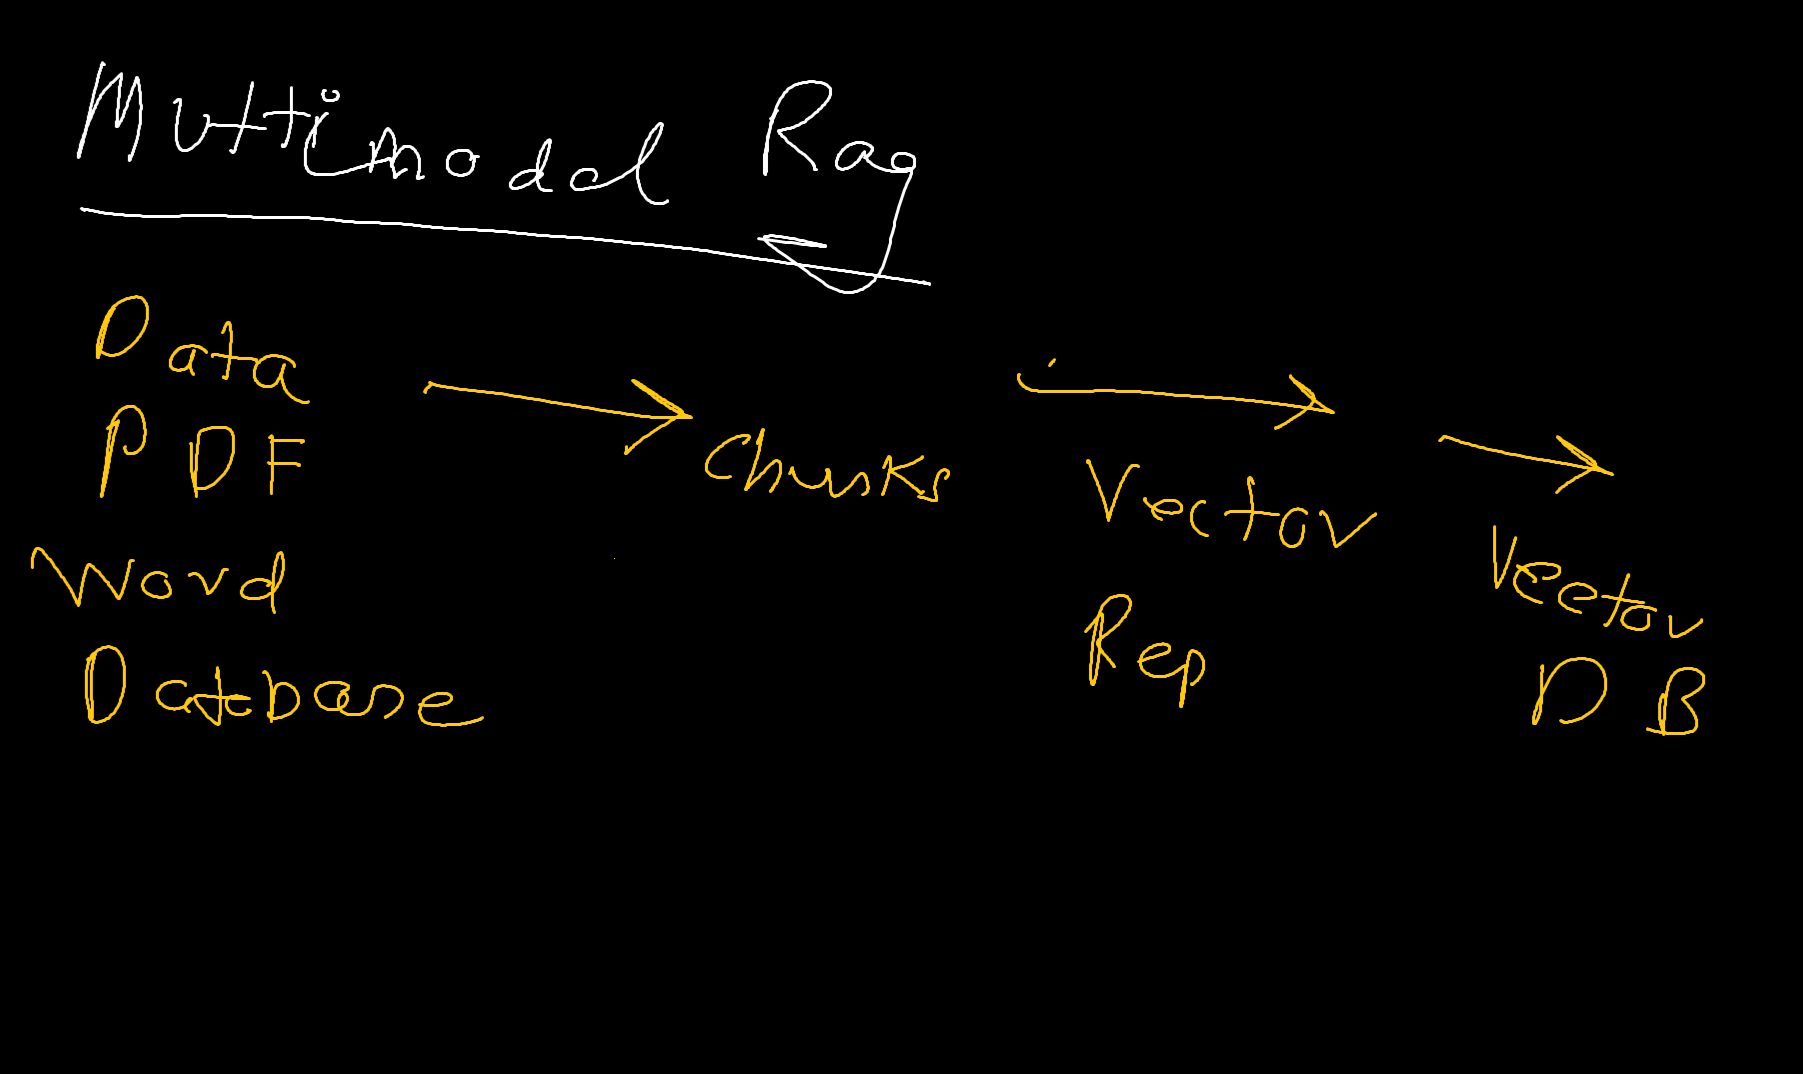 Multimodal Rag
Data
PDF
Word
Database
Chunks
Vector
Rep
Vector
DB